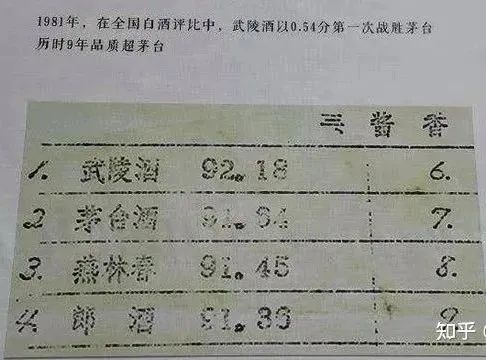 1981年，在全国白酒评比中，武陵酒以0.54分第一次战胜茅台
历时9年品质超茅台
三 酱 香
1. 武陵酒 92.18 6.
2 茅台酒 91.64 7.
3. 燕林春 91.45 8.
4. 郎 酒 91.33 9
知乎